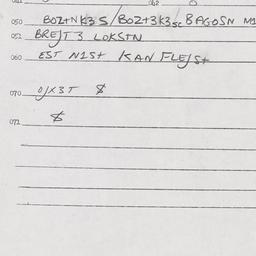 062
050 BOZ+NK3S/BOZ+3K3SC BAGOSN M1
052 BREJT3 LOKSTN
060 EST N1St KAN FLEJSt
070 OJX3T $
072 $